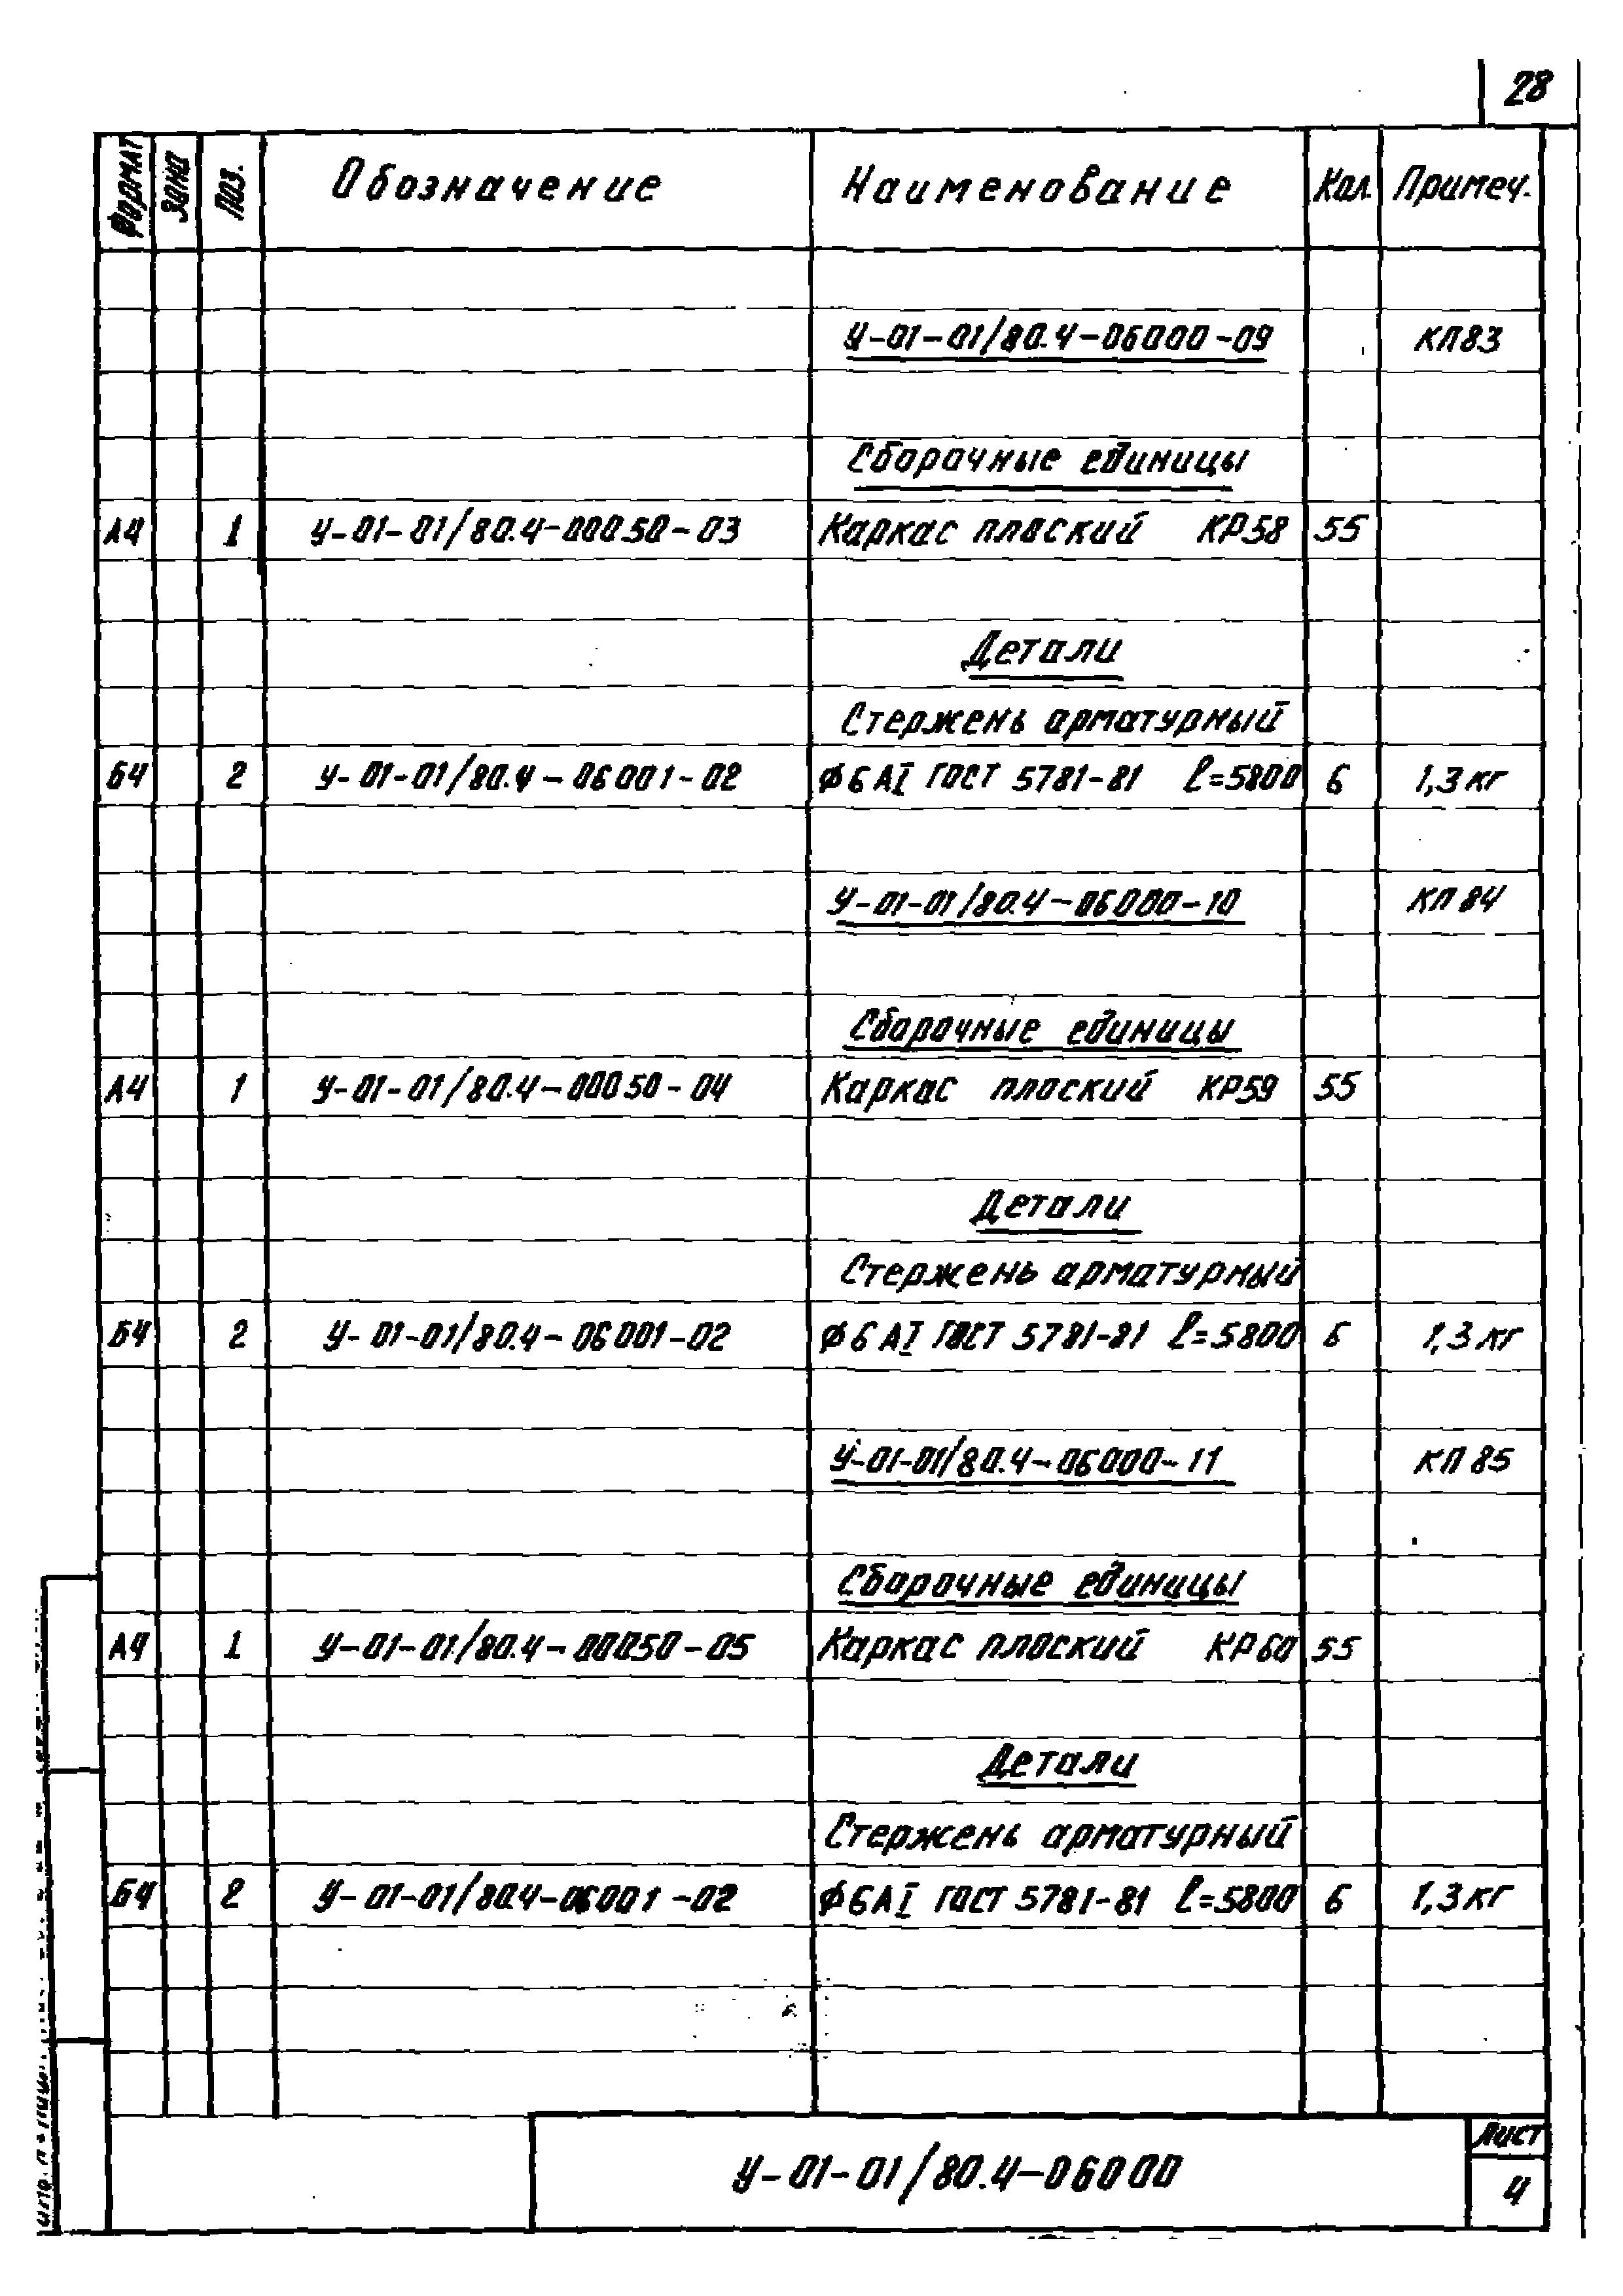 28
Формат Зона Поз. Обозначение Наименование Кол. Примеч.
У-01-01/80.4-06000-09 КП83
Сборочные единицы
А4 1 У-01-01/80.4-00050-03 Каркас плоский КР58 55
Детали
Стержень арматурный
Б4 2 У-01-01/80.4-06001-02 ф6АI ГОСТ 5781-81 ℓ=5800 6 1,3кг
У-01-01/80.4-06000-10 КП84
Сборочные единицы
А4 1 У-01-01/80.4-00050-04 Каркас плоский КР59 55
Детали
Стержень арматурный
Б4 2 У-01-01/80.4-06001-02 ф6АI ГОСТ 5781-81 ℓ=5800 6 1,3кг
У-01-01/80.4-06000-11 КП85
Сборочные единицы
А4 1 У-01-01/80.4-00050-05 Каркас плоский КР60 55
Детали
Стержень арматурный
Б4 2 У-01-01/80.4-06001-02 ф6АI ГОСТ 5781-81 ℓ=5800 6 1,3кг
У-01-01/80.4-06000
Лист
4